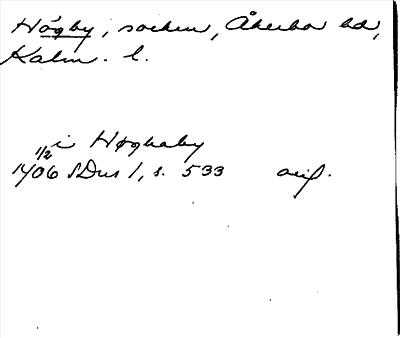 Högby, socken, Åkerbo hd,
Kalm. l.
i Høghaby
1/2
1406 SDns 1, s. 533 orig.